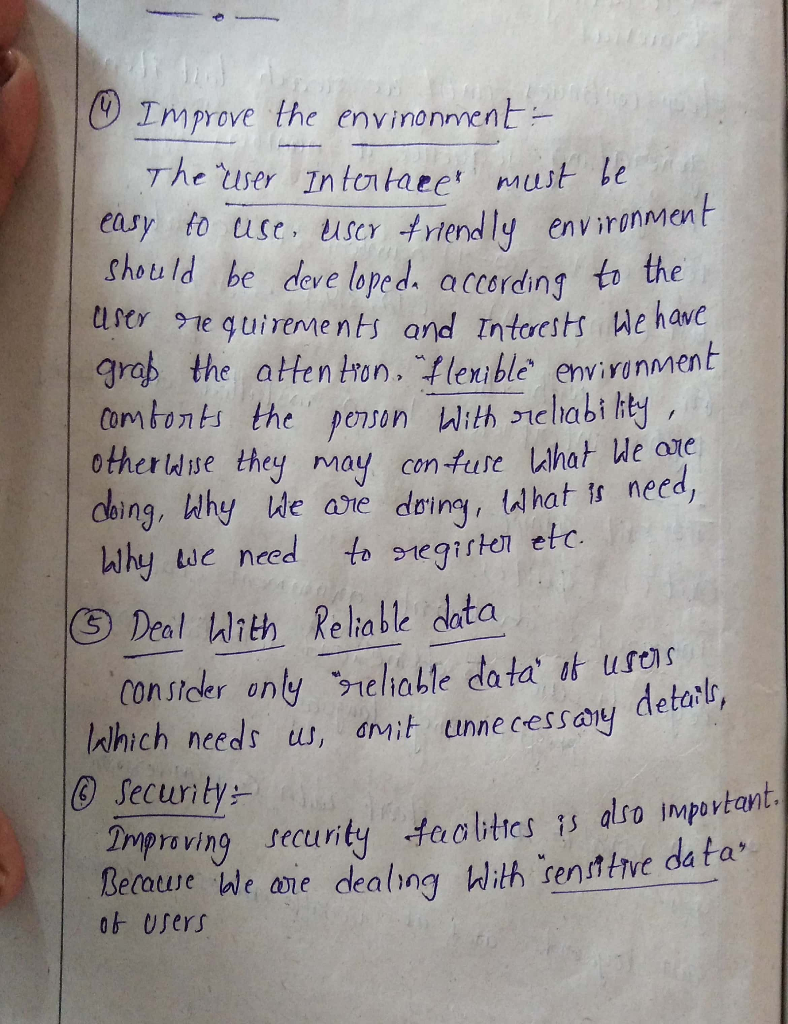 ④ Improve the environment :-
The "user Interface" must be
easy to use. user friendly environment
should be developed. according to the
user requirements and Interests We have
grab the attention. "flexible" environment
comforts the person With reliability,
otherwise they may confuse What We are
doing, Why We are doing, What is need,
Why we need to register etc.
⑤ Deal With Reliable data
consider only "reliable data" of users
Which needs us, omit unnecessary details,
⑥ Security :-
Improving security facilities is also important.
Because We are dealing With "sensitive data"
of users